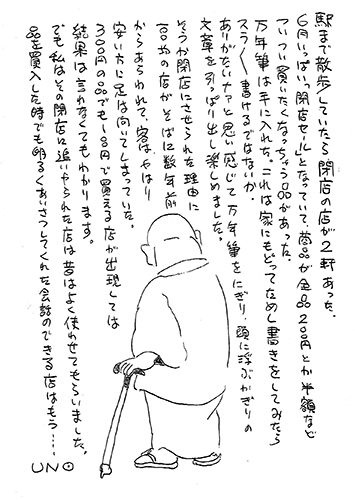 駅まで散歩していたら閉店の店が2軒あった。
6月いっぱい、閉店セールとなっていて、商品が全品200円とか半額など
ついつい買いたくなっちゃう品があった。
万年筆は手に入れた。これは家にもどってためし書きをしてみたら
スラ〱書けるではないか。
ありがたいナァと思い感じて万年筆をにぎり、頭に浮ぶかぎりの
文章を引っぱり出し楽しめました。
そうか閉店にさせられた理由に
100均の店がそばに数年前
からあらわれて、客はやはり
安い方に足は向いてしまっていた。
300円の品でも108円で買える店が出現しては
結果は言わなくてもわかります。
でも私はその閉店に追いやられた店は昔はよく使わせてもらいました。
品を買入した時でも明るくあいさつしてくれた会話のできる店はもう……
UNO